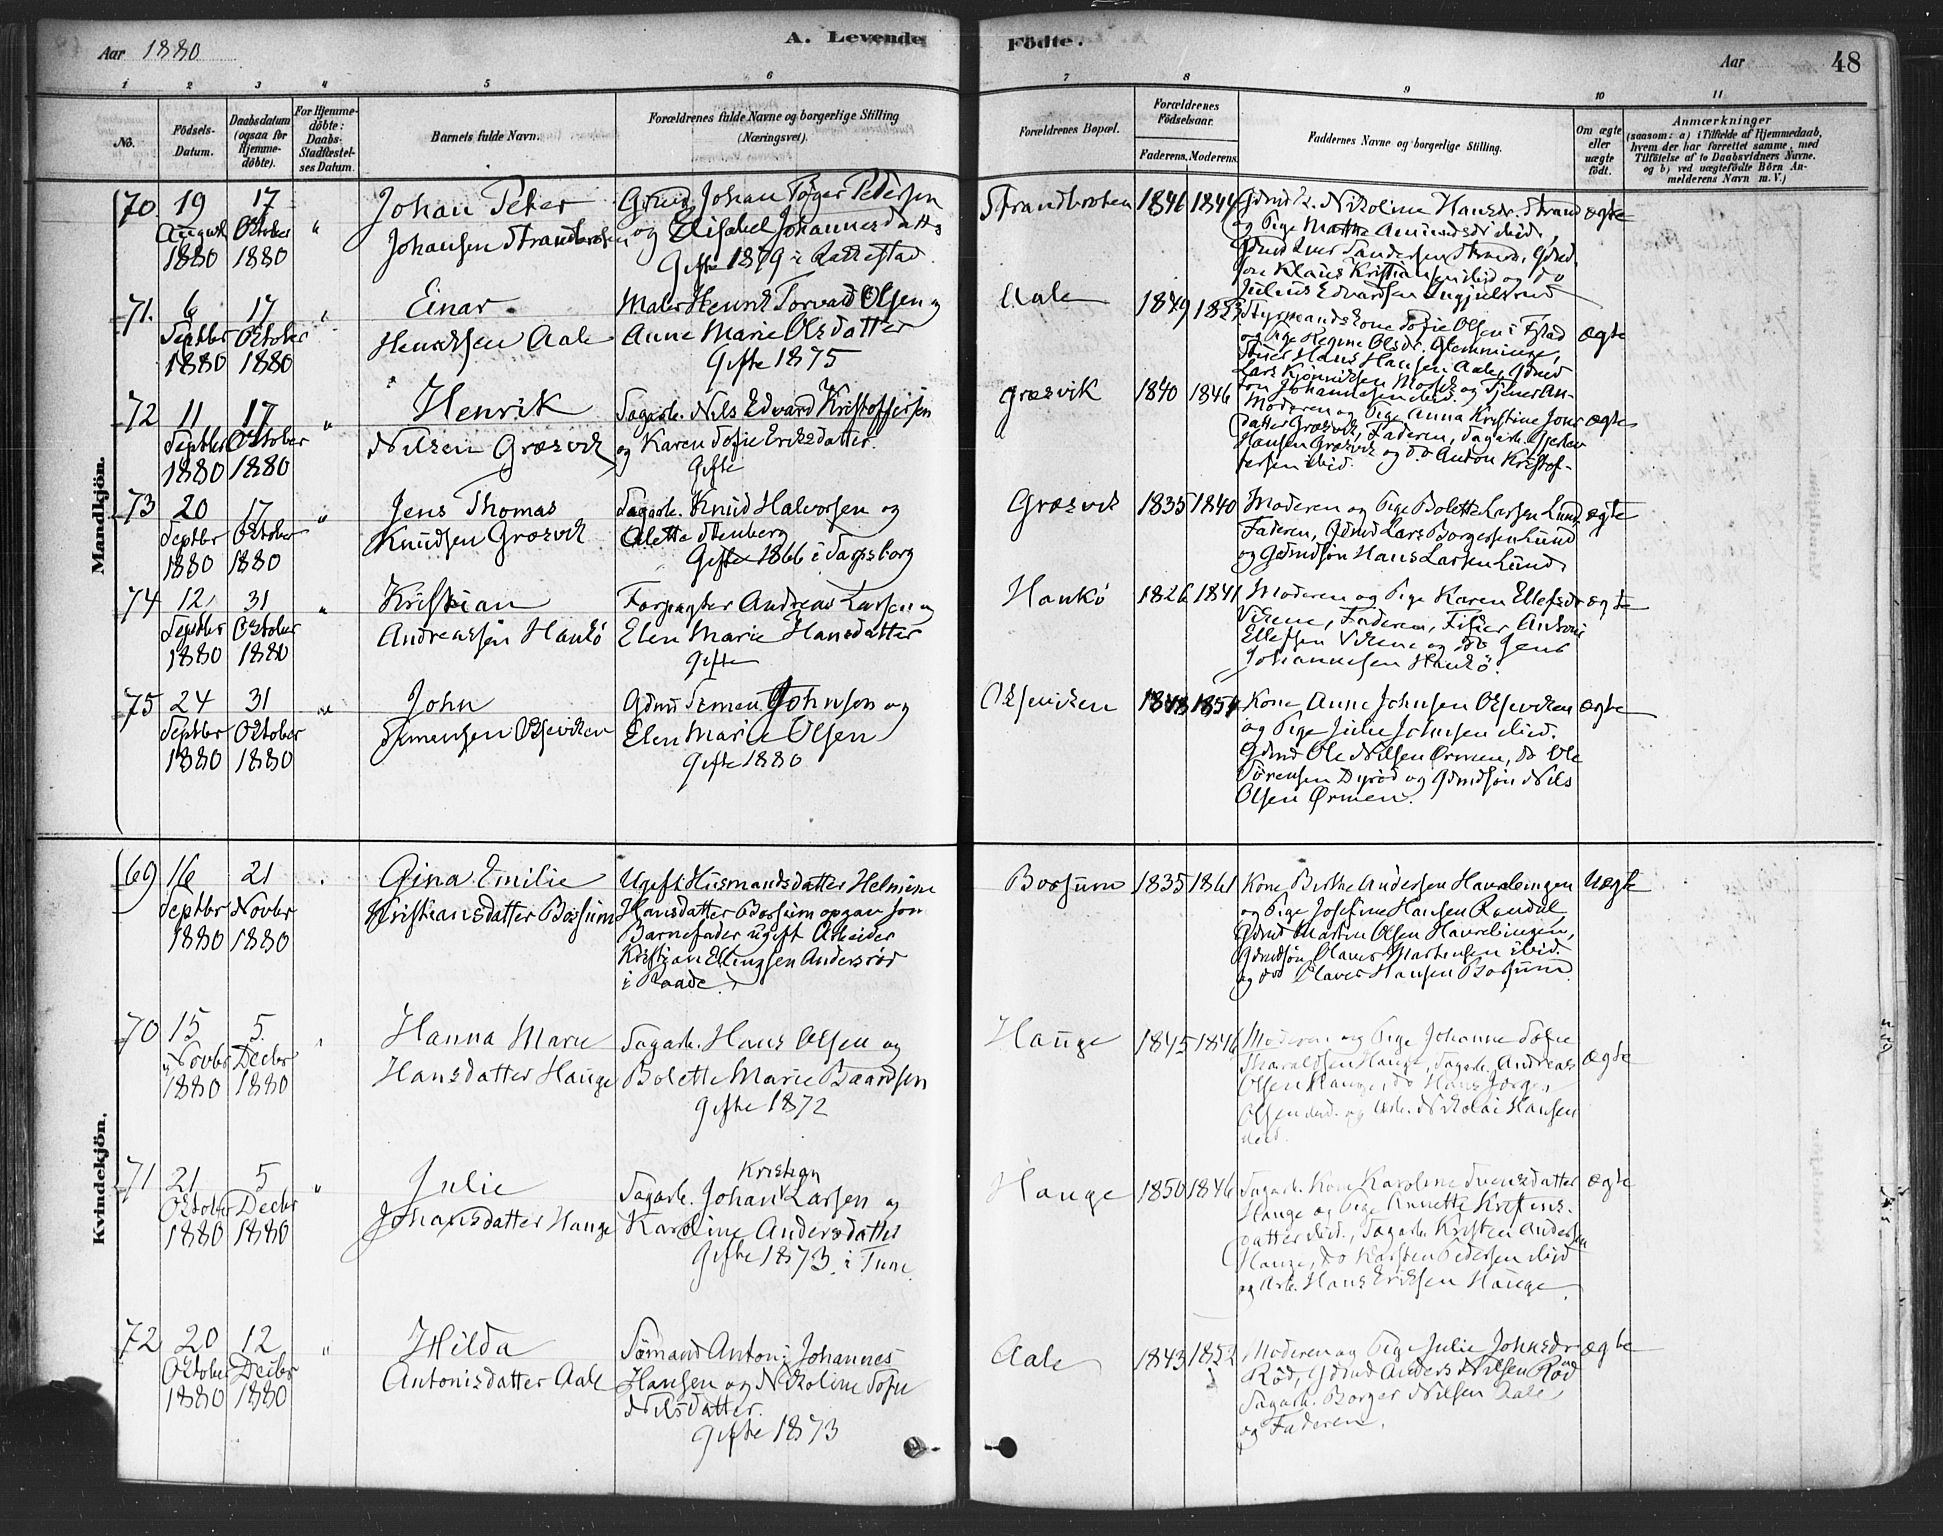 Aar 1880
A. Levende Födte.
Aar
48
1 2 3 4 5 6 7 8 9 10 11
No.
Födsels-Datum.
Daabsdatum (ogsaa for Hjemme-döbte).
For Hjemme-döbte: Daabs-Stadfæstel-ses Datum.
Barnets fulde Navn.
Forældrenes fulde Navne og borgerlige Stilling (Næringsvei).
Forældrenes Bopæl.
Forældrenes Födselsaar.
Faderens. Moderens.
Faddernes Navne og borgerlige Stilling.
Om ægte eller uægte födt.
Anmærkninger
(saasom: a) i Tilfælde af Hjemmedaab,
hvem der har forrettet samme, med
Tilföielse af to Daabsvidners Navne.
og b) ved uægtefödte Börn An-
melderens Navn m. V.)
Mandkjön.
70. 19 August 1880
17 Oktober 1880
"
Johan Peter
Johansen Strandbroten
Gmd. Johan Töger Pedersen
og Elisabet Johannesdatter
Gifte 1879 i Rakkestad
Strandbroten
1846 1844
Gdmd k. Nikoline Hansdr. Strand
og Pige Marthe Amundsdr ibid,
Gdmd Iver Sandersen Strand, Gdmd.
søn Klaus Kristiansen ibid og do
Julius Edvardsen
ægte
71. 6 Septbr 1880
17 Oktober 1880
"
Einar
Henriksen Aale
Maler Henrik Torvald Olsen og
Anne Marie Olsdatter
Gifte 1875
Aale
1849 1853
Styrmandskone Sofie Olsen i Fstad
og Pige Regine Olsdr. Glemminge,
Hans Hansen Aale, Gdmd
Lars
ægte
72 11 Septbr 1880
17 Oktober 1880
"
Henrik
Nilsen Græsvik
Sagarb. Nils Edvard Kristoffersen
og Karen Sofie Eriksdatter.
Gifte
Græsvik
1840 1846
Moderen og Pige Anna Kristine Jons
datter Græsvik, Faderen, Sagarb.
Hansen Græsvik og do Anton Kristof-
fersen ibid.
ægte
73 20 Septbr 1880
17 Oktober 1880
"
Jens Thomas
Knudsen Græsvik
Sagarb. Knud Halvorsen og
Olette Stenberg
Gifte 1866 i Sarpsborg
Græsvik
1835 1840
Moderen og Pige Bolette Larsen Lund,
Faderen, Gdmd Lars Borgersen Lund
og Gdmdsøn Hans Larsen Lund.
ægte
74 12 Septbr 1880
31 Oktober 1880
"
Kristian
Andreassen Hankö
Forpagter Andreas Larsen og
Elen Marie Hansdatter
Gifte
Hankö
1826 1841
Moderen og Pige Karen Ellefsdr
Vikene, Faderen, Fisker Antoni
Ellefsen Vikene og do Jens
Johannesen Hankö.
ægte
75 24 Septbr 1880
31 Oktober 1880
"
John
Simensen Oksviken
Gdmd Simen Johnsen og
Elen Marie Olsen
Gifte 1880
Oksviken
1848 1854
Kone Anne Johnsen Oksviken
og Pige Julie Johnsen ibid.
Gdmd Ole Nilsen Ørmen, do Ole
Sörensen Dyröd og Gdmdsøn Nils
Olsen Ørmen.
ægte
Kvindekjön.
69 16 Septbr 1880
21 Novbr 1880
Gina Emilie
Kristiansdatter Bossum
Ugift Husmandsdatter Helmine
Hansdatter Bossum opgav som
Barnefader ugift Arbeider
Kristian Ellingsen Andersröd
i Raade.
Bossum
1835 1861
Kone Berthe Andersen Haveelingen
og Pige Josefine Hansen Rændal
Gdmd Martin Olsen Haveelingen,
Gdmdsøn Olaus Martinsen ibid.
og do Olaves Hansen Bossum
Uægte
70 15 Novbr 1880
5. Decbr 1880
"
Hanna Marie
Hansdatter Hauge
Sagarb. Hans Olsen og
Bolette Marie Baardsen
Gifte 1872
Hauge
1845 1846
Moderen og Pige Johanne Sofie
Haraldsen Hauge, Sagarb. Andreas
Olsen Hauge, do Hans Jørg.
Olsen ibid. og Arb. Nikolai Hansen
ibid.
ægte
71 21 Oktober 1880
5 Decbr 1880
"
Julie
Johansdatter Hauge
Sagarb. Johan Kristian Larsen og
Karoline Andersdatter
Gifte 1873 i Tune
Hauge
1850 1846
Sagarb. Kone Karoline Svensdatter
Hauge og Pige Annette Kristens-
datter ibid., Sagarb. Kristen Andersen
Hauge, do Karsten Pedersen ibid
og Arb. Hans Eriksen Hauge.
ægte
72 20 Oktober 1880
12 Decbr 1880
"
Hilda
Antonisdatter Aale
Sömand Antoni Johannes
Hansen og Nikoline Sofie
Nilsdatter.
Gifte 1873
Aale
1843 1852
Moderen og Pige Julie Johnsdr
Röd, Gdmd Anders Nilsen Röd
Sagarb. Borger Nilsen Aale
og Faderen.
ægte